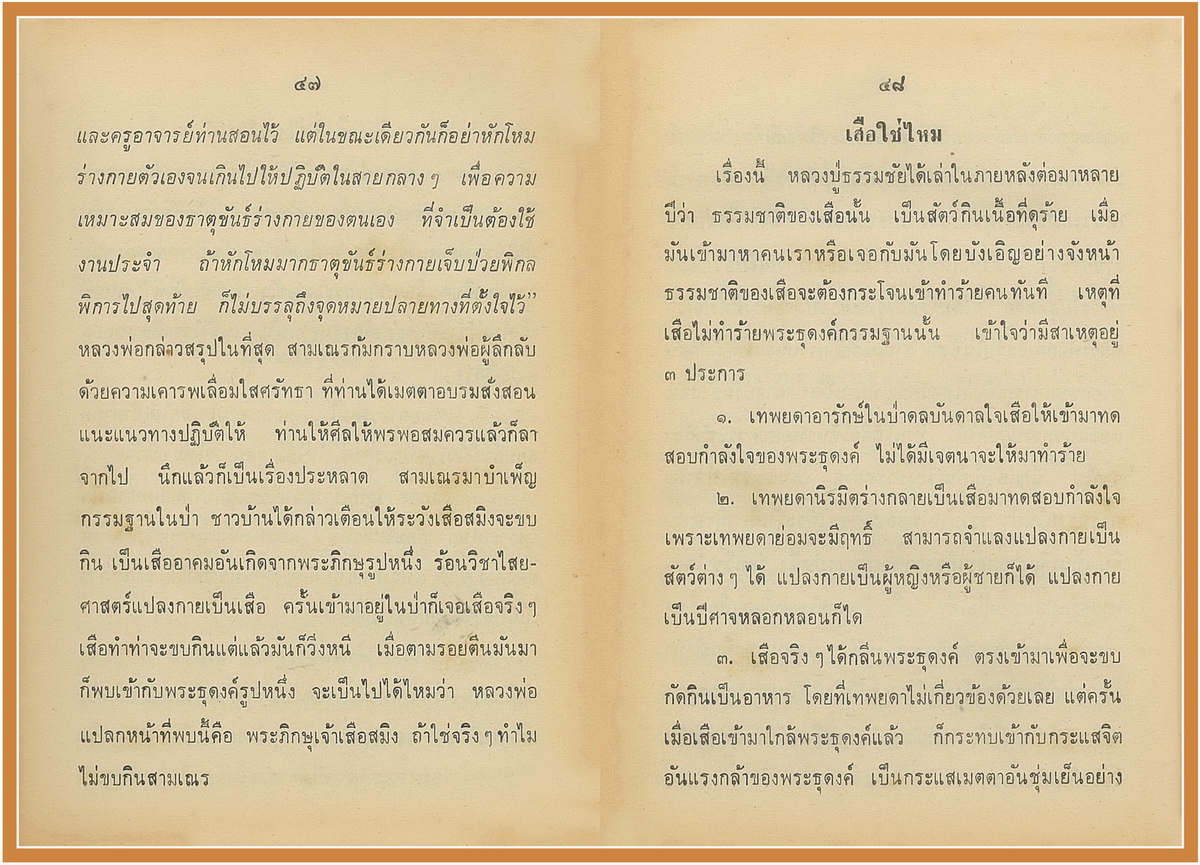 ๔๗
และครูอาจารย์ท่านสอนไว้ แต่ในขณะเดียวกันก็อย่าหักโหม
ร่างกายตัวเองจนเกินไปให้ปฏิบัติในสายกลาง ๆ เพื่อความ
เหมาะสมของธาตุขันธ์ร่างกายของตนเอง ที่จำเป็นต้องใช้
งานประจำ ถ้าหักโหมมากธาตุขันธ์ร่างกายเจ็บป่วยพิกล
พิการไปสุดท้าย ก็ไม่บรรลุถึงจุดหมายปลายทางที่ตั้งใจไว้”
หลวงพ่อกล่าวสรุปในที่สุด สามเณรก้มกราบหลวงพ่อผู้ลึกลับ
ด้วยความเคารพเลื่อมใสศรัทธา ที่ท่านได้เมตตาอบรมสั่งสอน
แนะแนวทางปฏิบัติให้ ท่านให้ศีลให้พรพอสมควรแล้วก็ลา
จากไป นึกแล้วก็เป็นเรื่องประหลาด สามเณรมาบำเพ็ญ
กรรมฐานในป่า ชาวบ้านได้กล่าวเตือนให้ระวังเสือสมิงจะขบ
กิน เป็นเสืออาคมอันเกิดจากพระภิกษุรูปหนึ่ง ร้อนวิชาไสย-
ศาสตร์แปลงกายเป็นเสือ ครั้นเข้ามาอยู่ในป่าก็เจอเสือจริง ๆ
เสือทำท่าจะขบกินแต่แล้วมันก็วิ่งหนี เมื่อตามรอยตีนมันมา
ก็พบเข้ากับพระธุดงค์รูปหนึ่ง จะเป็นไปได้ไหมว่า หลวงพ่อ
แปลกหน้าที่พบนี้คือ พระภิกษุเจ้าเสือสมิง ถ้าใช่จริง ๆ ทำไม
ไม่ขบกินสามเณร
๔๘
เสือใช่ไหม
เรื่องนี้ หลวงปู่ธรรมชัยได้เล่าในภายหลังต่อมาหลาย
ปีว่า ธรรมชาติของเสือนั้น เป็นสัตว์กินเนื้อที่ดุร้าย เมื่อ
มันเข้ามาหาคนเราหรือเจอกับมันโดยบังเอิญอย่างจังหน้า
ธรรมชาติของเสือจะต้องกระโจนเข้าทำร้ายคนทันที เหตุที่
เสือไม่ทำร้ายพระธุดงค์กรรมฐานนั้น เข้าใจว่ามีสาเหตุอยู่
๓ ประการ
๑. เทพยดาอารักษ์ในป่าดลบันดาลใจเสือให้เข้ามาทด
สอบกำลังใจของพระธุดงค์ ไม่ได้มีเจตนาจะให้มาทำร้าย
๒. เทพยดานิรมิตร่างกลายเป็นเสือมาทดสอบกำลังใจ
เพราะเทพยดาย่อมจะมีฤทธิ์ สามารถจำแลงแปลงกายเป็น
สัตว์ต่าง ๆ ได้ แปลงกายเป็นผู้หญิงหรือผู้ชายก็ได้ แปลงกาย
เป็นปีศาจหลอกหลอนก็ได
๓. เสือจริง ๆ ได้กลิ่นพระธุดงค์ ตรงเข้ามาเพื่อจะขบ
กัดกินเป็นอาหาร โดยที่เทพยดาไม่เกี่ยวข้องด้วยเลย แต่ครั้น
เมื่อเสือเข้ามาใกล้พระธุดงค์แล้ว ก็กระทบเข้ากับกระแสจิต
อันแรงกล้าของพระธุดงค์ เป็นกระแสเมตตาอันชุ่มเย็นอย่าง